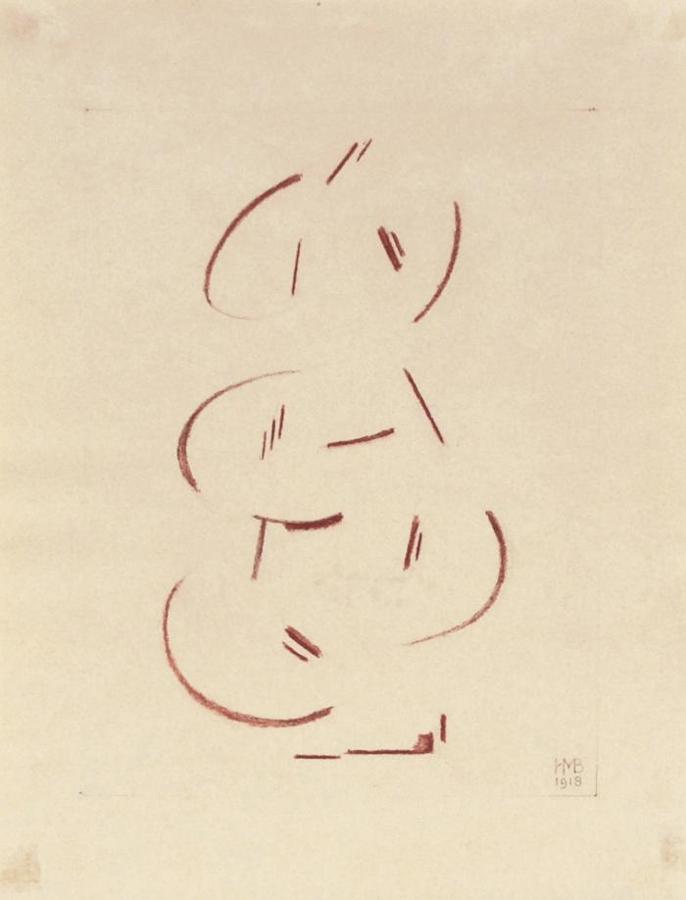 HMB
1918